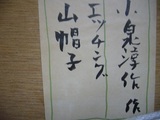 小泉淳作 作
エッチング
山帽子